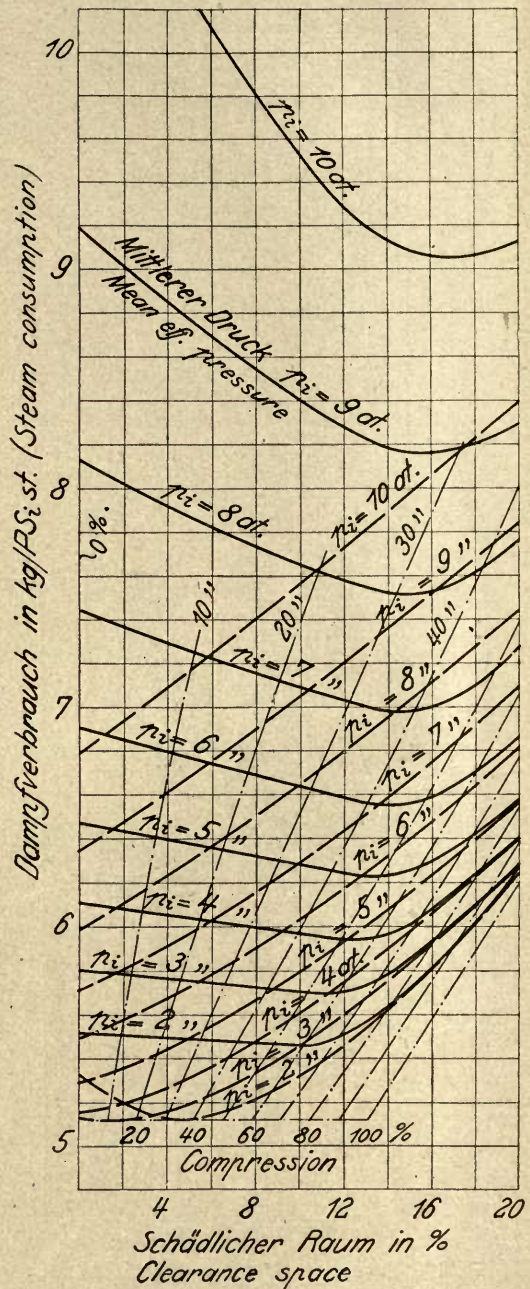 Dampfverbrauch in kg/PSi st. (Steam consumption)
10
9
8
7
6
5
pi = 10 at.
Mittlerer Druck
Mean eff. pressure
pi = 9 at.
pi = 8 at.
~0%.
pi = 7 "
pi = 6 "
pi = 5 "
pi = 4 "
pi = 3 "
pi = 2 "
10 "
20 "
30 "
40 "
pi = 10 at.
pi = 9 "
pi = 8 "
pi = 7 "
pi = 6 "
pi = 5 "
pi = 4 at.
pi = 3 "
pi = 2 "
20 40 60 80 100 %
Compression
4 8 12 16 20
Schädlicher Raum in %
Clearance space